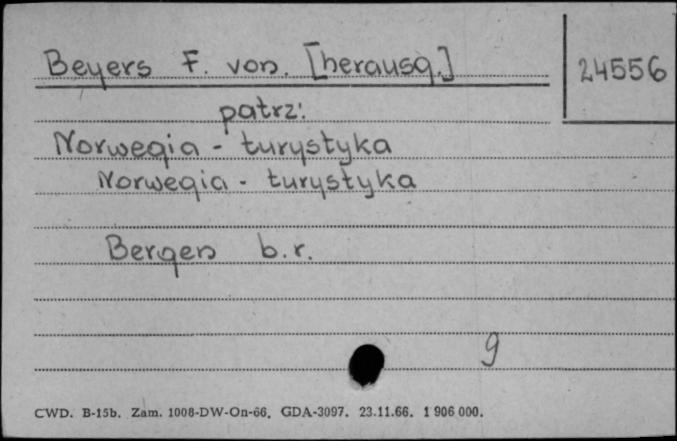 Beyers F. von. [herausg.]
24556
patrz:
Norwegia - turystyka
Norwegia - turystyka
Bergen b.r.
9
CWD. B-15b. Zam. 1008-DW-On-66. GDA-3097. 23.11.66. 1 906 000.